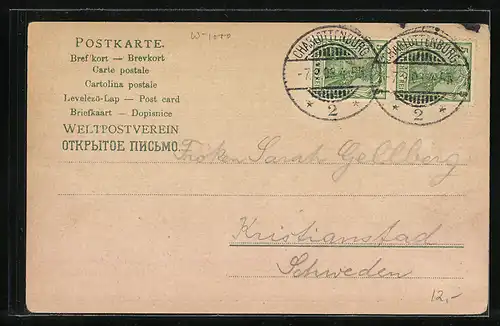 POSTKARTE.
W-1000
Brefkort — Brevkort
Carte postale
Cartolina postale
Levelező-Lap — Post card
Briefkaart — Dopisnice
WELTPOSTVEREIN
ОТКРЫТОЕ ПИСЬМО.
CHARLOTTENBURG
* 2 *
CHARLOTTENBURG
* 2 *
Fröken Sarah Gellberg
Kristianstad
Schweden
12,-